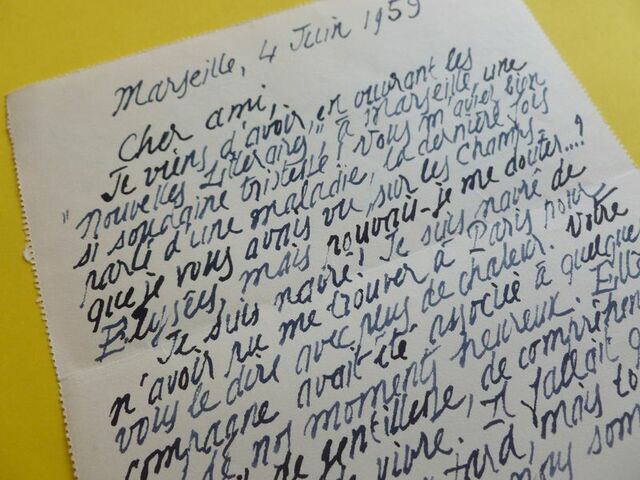 Marseille, 4 Juin 1959
Cher ami,
Je viens d'avoir, en ouvrant les
"Nouvelles Littéraires" à Marseille, une
si soudaine tristesse! Vous m'aviez bien
parlé d'une maladie, la dernière fois
que je vous avais vu, sur les Champs-
Elysées, mais pouvais-je me douter....?
Je suis navré! Je suis navré de
n'avoir pu me trouver à Paris pour
vous le dire avec plus de chaleur. Votre
compagne avait été associée à quelque
de nos moments heureux. Elle
de gentillesse, de compréhen
vivre. Il fallait
tard, mais to
nous som